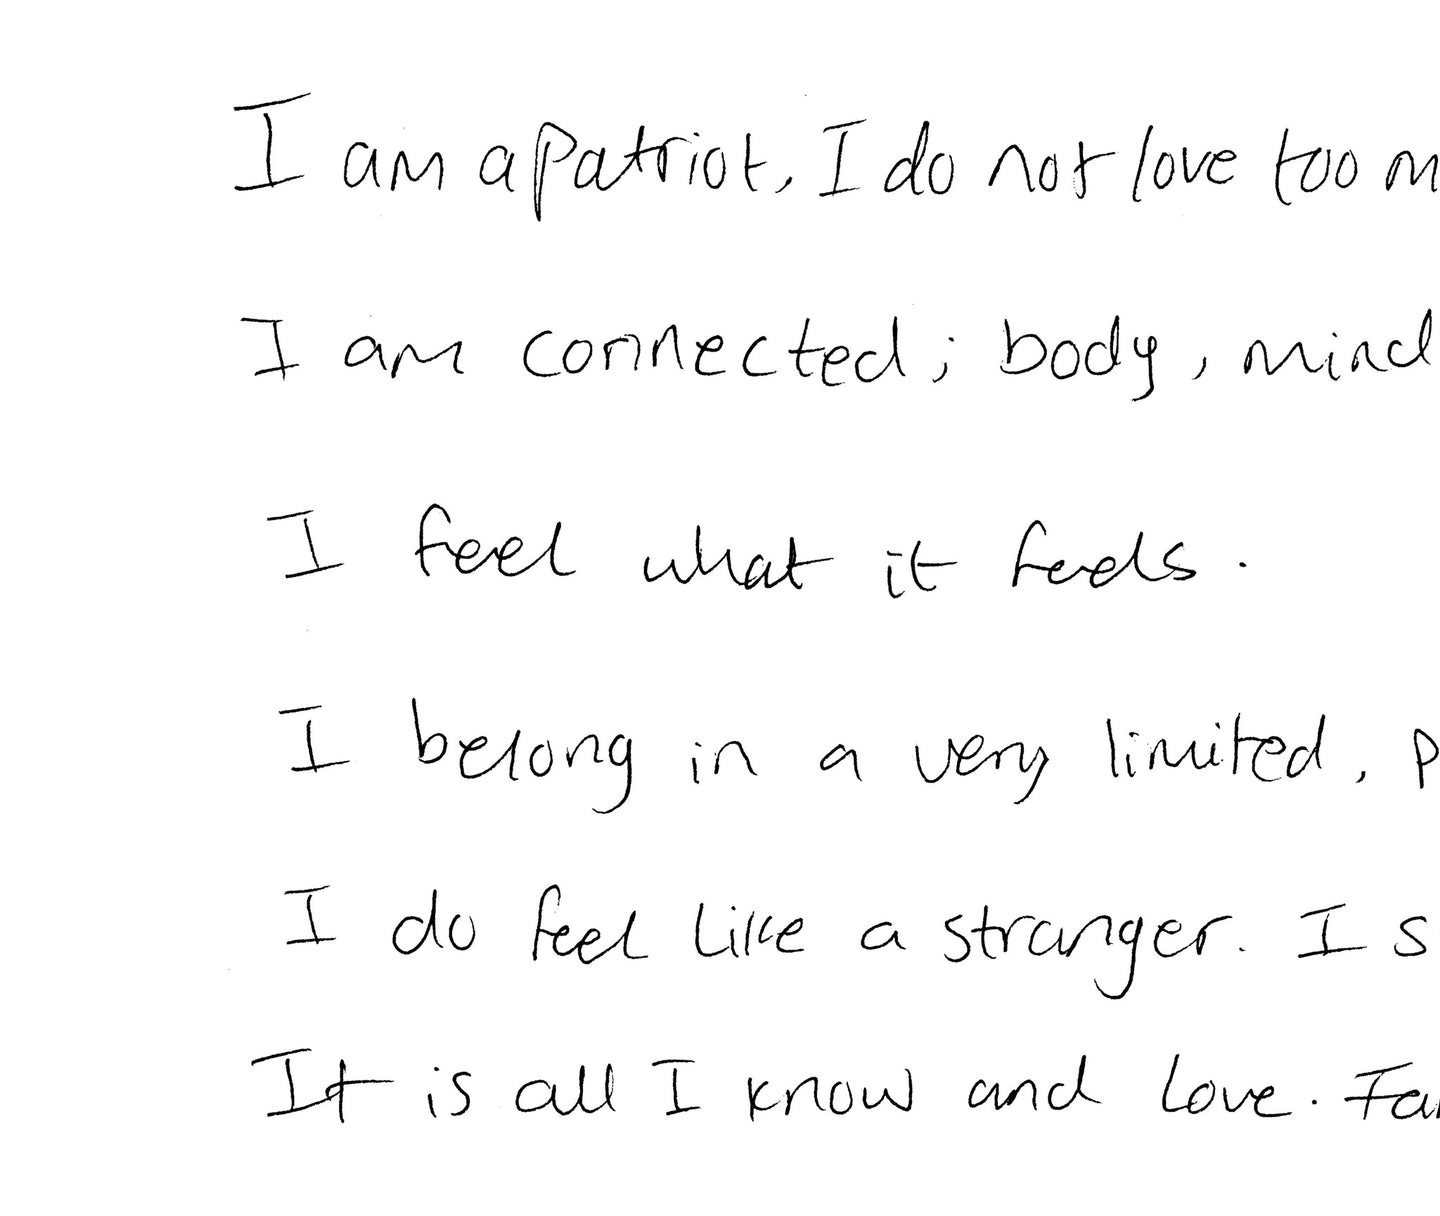 I am a patriot, I do not love too m
I am connected; body, mind
I feel what it feels.
I belong in a very limited, p
I do feel like a stranger. I s
It is all I know and love. Fa